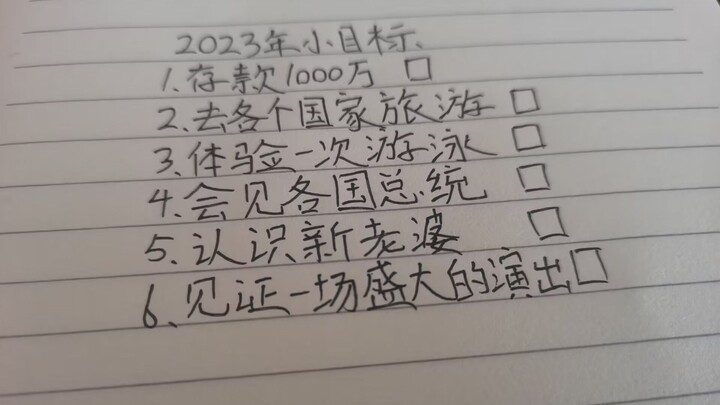 2023年小目标
1.存款1000万 □
2.去各个国家旅游 □
3.体验一次游泳 □
4.会见各国总统 □
5.认识新老婆 □
6.见证一场盛大的演出□